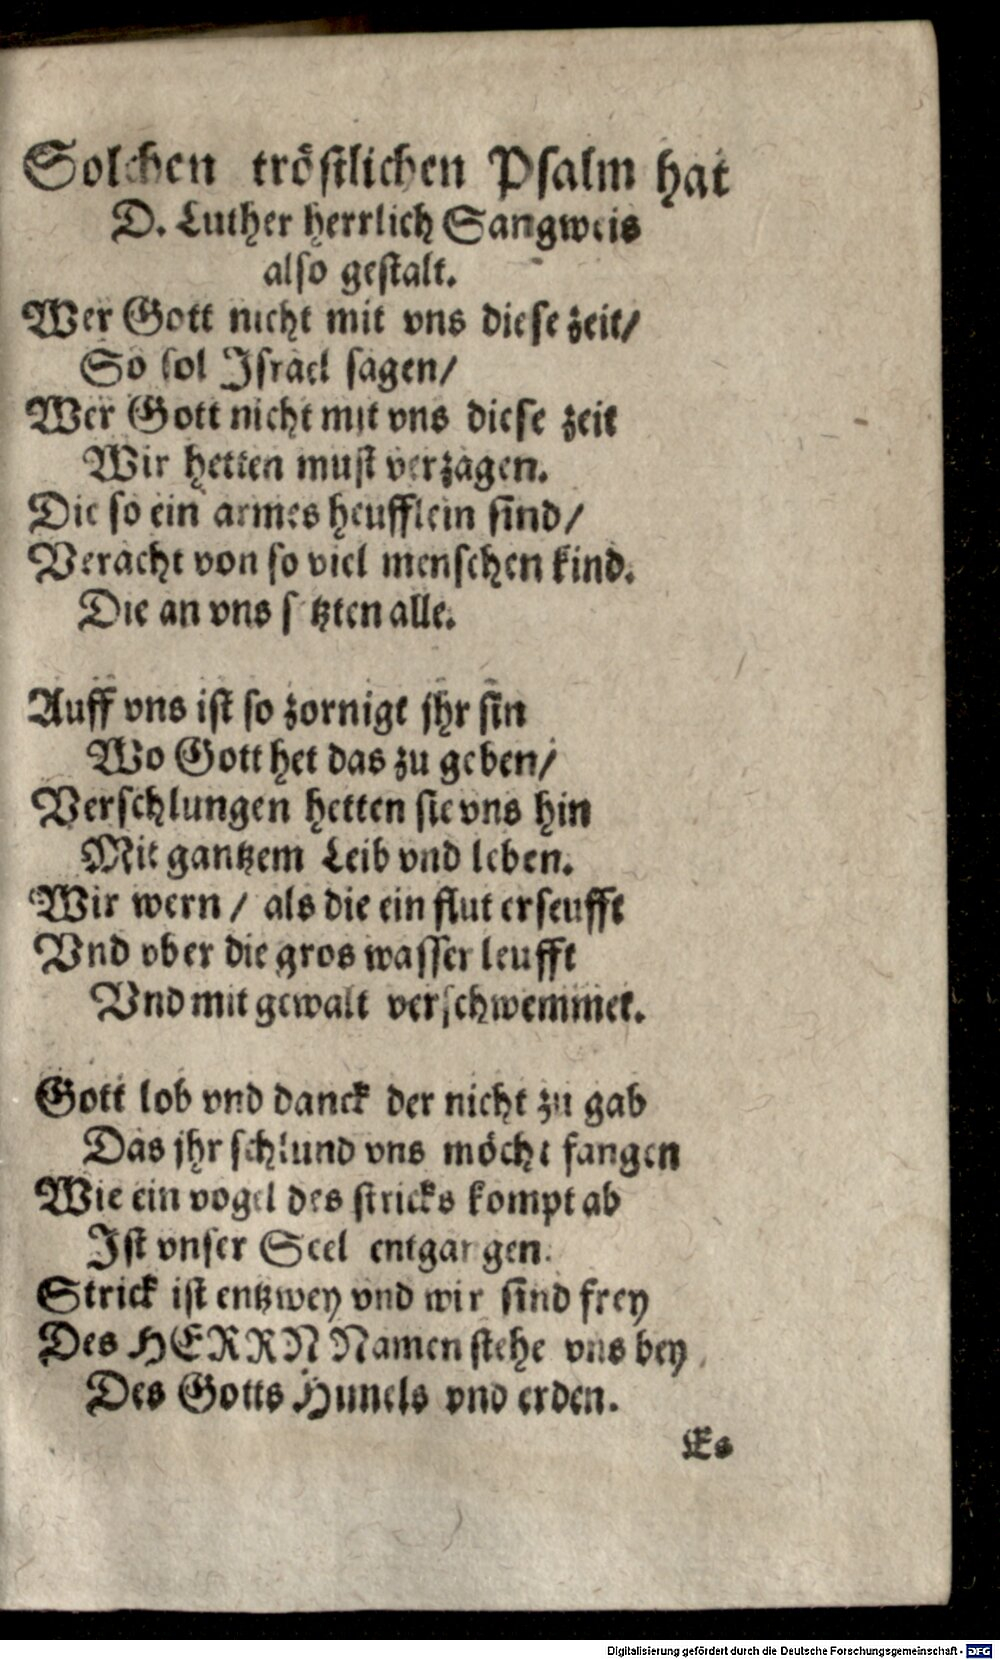 Solchen tröstlichen Psalm hat
D. Luther herrlich Sangweis
also gestalt.
Wer Gott nicht mit vns diese zeit/
So sol Israel sagen/
Wer Gott nicht mit vns diese zeit
Wir hetten must verzagen.
Die so ein armes heufflein sind/
Veracht von so viel menschen kind.
Die an vns setzten alle.
Auff vns ist so zornigt jhr sin
Wo Gott het das zu geben/
Verschlungen hetten sie vns hin
Mit gantzem Leib vnd leben.
Wir wern / als die ein flut erseufft
Vnd vber die gros wasser leufft
Vnd mit gewalt verschwemmet.
Gott lob vnd danck der nicht zu gab
Das jhr schlund vns möcht fangen
Wie ein vogel des stricks kompt ab
Ist vnser Seel entgangen.
Strick ist entzwey vnd wir sind frey
Des HERRN Namen stehe vns bey
Des Gotts Himels vnd erden.
Es
Digitalisierung gefördert durch die Deutsche Forschungsgemeinschaft - DFG